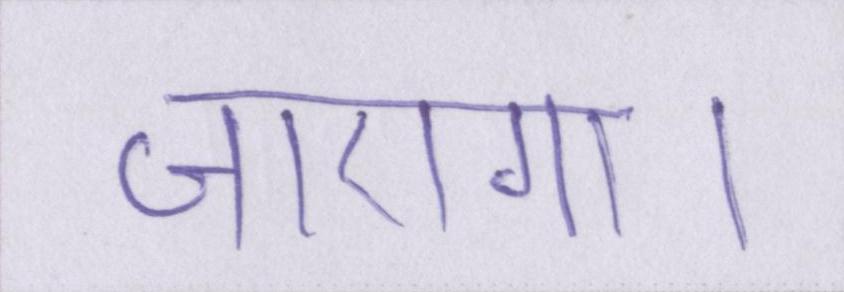 जाएगा।